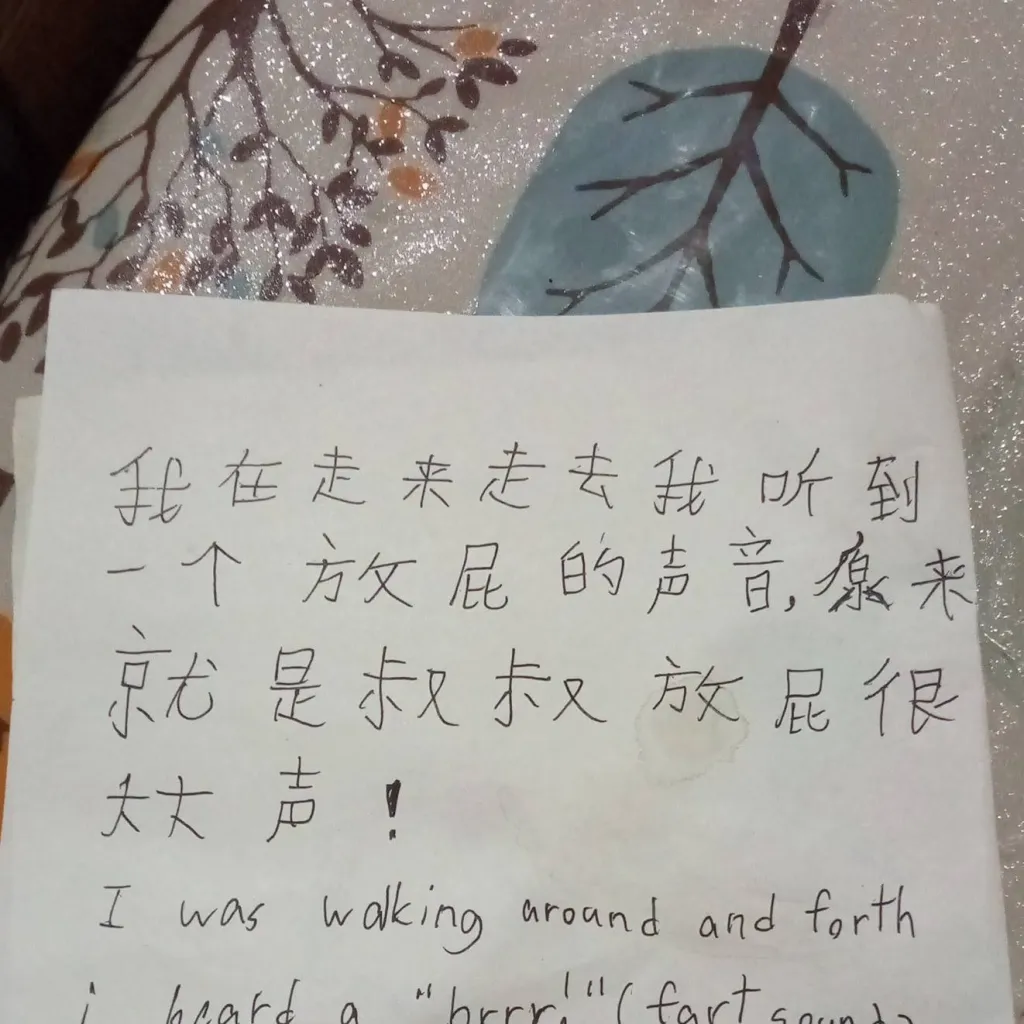 我在走来走去我听到
一个放屁的声音,原来
就是叔叔放屁很
大大声!
I was walking around and forth
i heard a "brrr!" (fart sound)